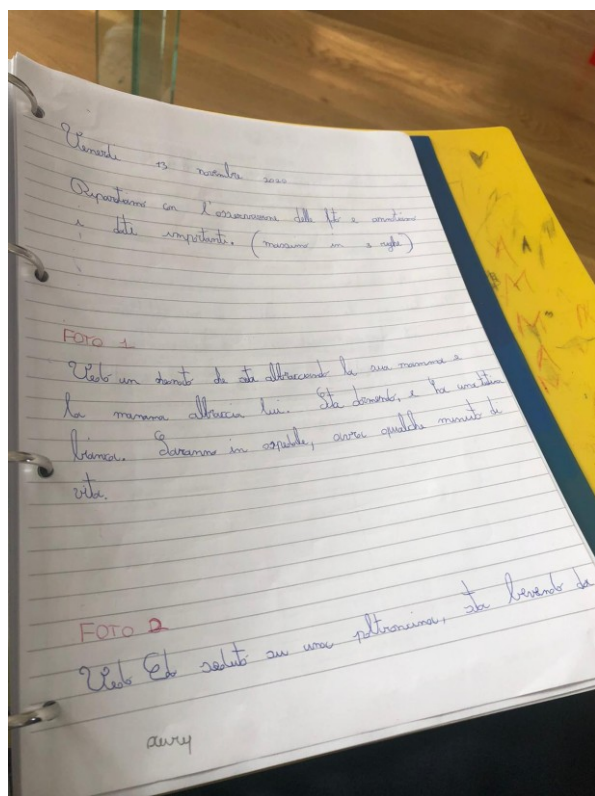 Venerdì 13 novembre 2020
Ripartiamo con l'osservazione delle foto e annotiamo
i dati importanti. (massimo in 3 righe)
FOTO 1
Vedo un bambino che sta abbracciando la sua mamma e
la mamma abbraccia lui. Sta dormendo, e ha una tutina
bianca. Saranno in ospedale, avrà qualche minuto di
vita.
FOTO 2
Vedo Edo seduto su una poltroncina, sta bevendo da